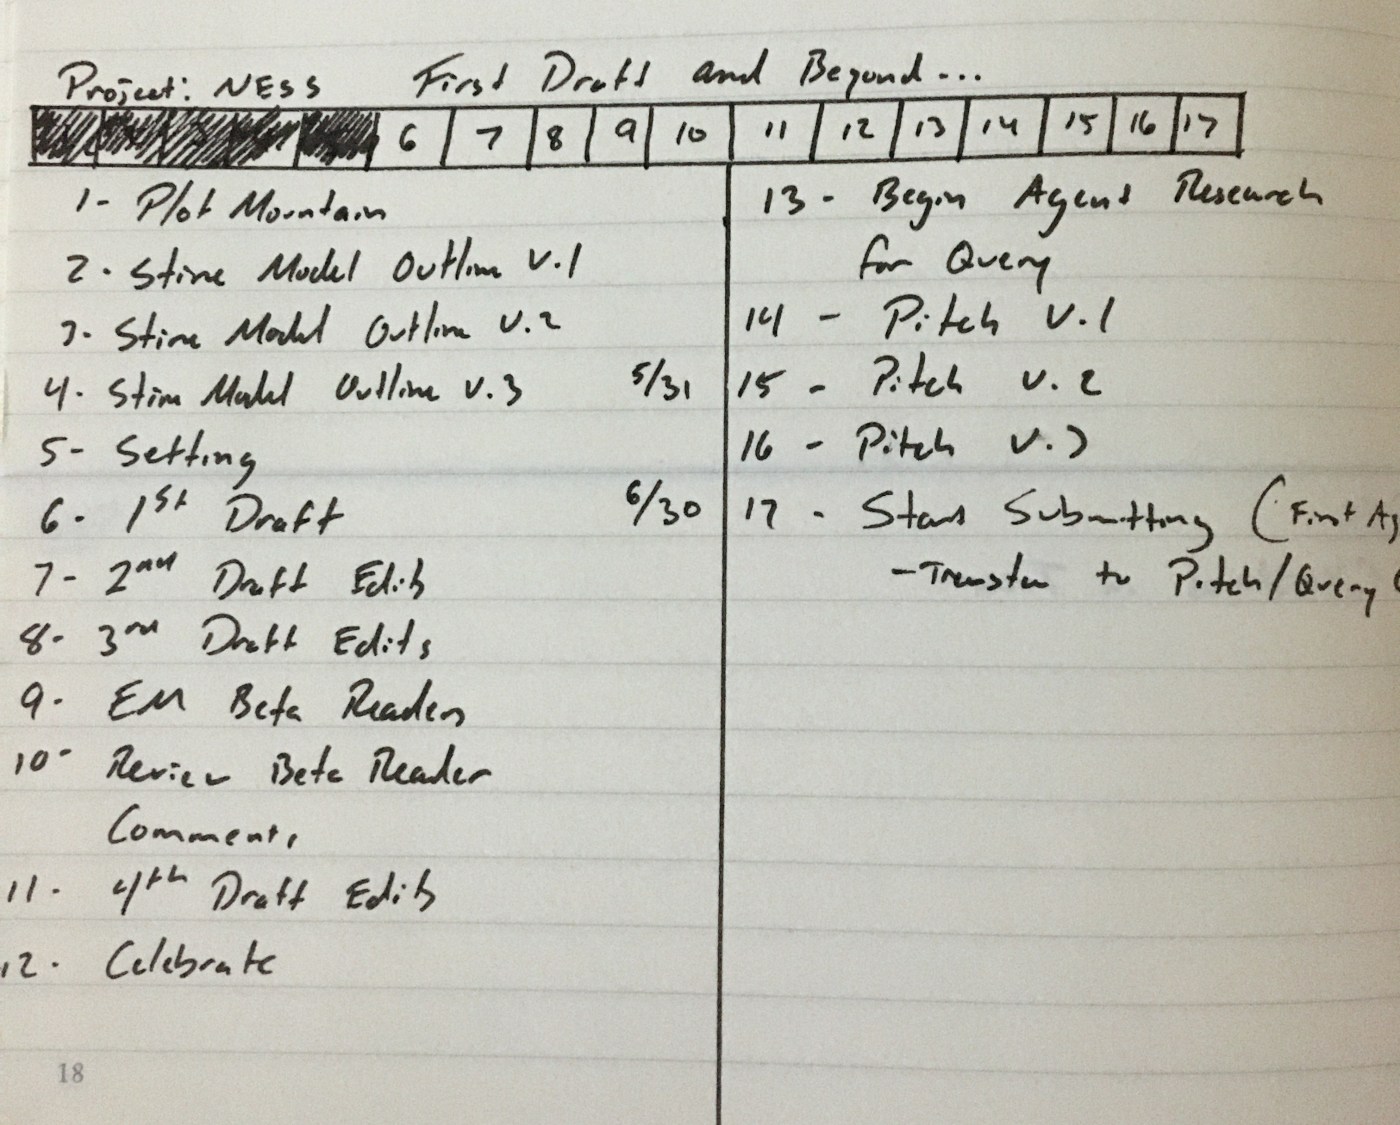 Project: NESS First Draft and Beyond...
6 7 8 9 10 11 12 13 14 15 16 17
1- Plot Mountain
2- Stine Model Outline v.1
3- Stine Model Outline v.2
4- Stine Model Outline v.3 5/31
5- Setting
6- 1st Draft 6/30
7- 2nd Draft Edits
8- 3rd Draft Edits
9- EM Beta Readers
10- Review Beta Reader
Comments
11- 4th Draft Edits
12- Celebrate
13- Begin Agent Research
for Query
14- Pitch v.1
15- Pitch v.2
16- Pitch v.3
17- Start Submitting (First Ag
-Transfer to Pitch/Query (
18